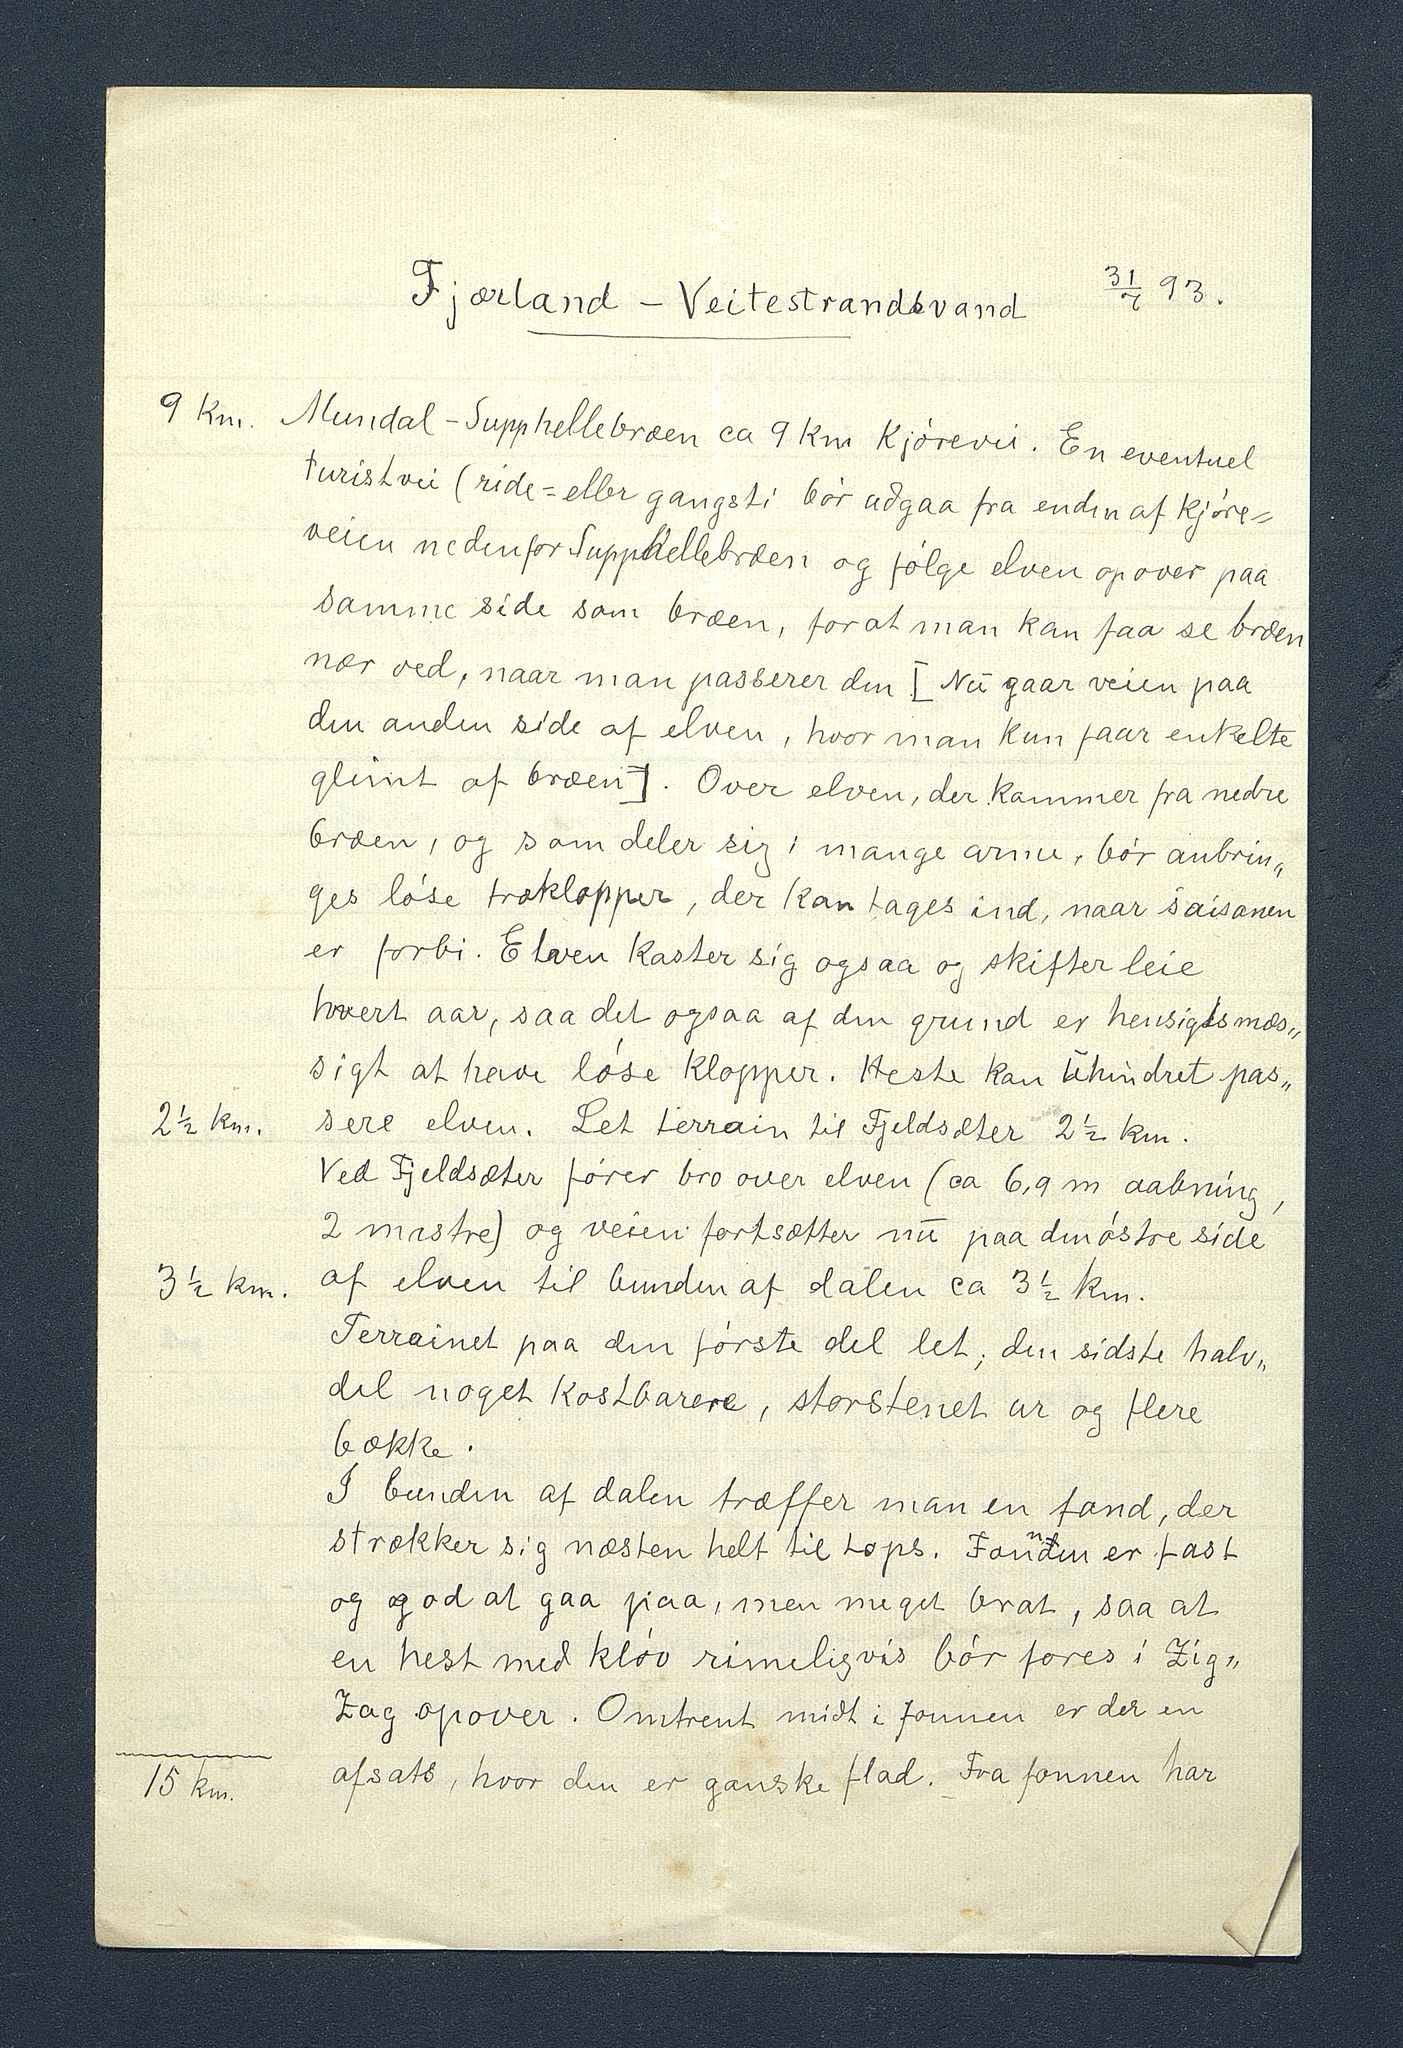 Fjærland – Veitestrandsvand 31/7 93.
9 km. Mundal – Supphellebræen ca 9 km kjórevei. En eventuel
turistvei (ride= eller gangsti bór udgaa fra enden af kjóre=
veien nedenfor Supphellebræen og fólge elven opover paa
samme side som bræen, forat man kan faa se bræen
nær ved, naar man passerer den [Nu gaar veien paa
den anden side af elven, hvor man kun faar enkelte
glimt af bræen]. Over elven, der kommer fra nedre
bræen, og som deler sig i mange arme, bór anbrin„
ges lóse træklopper, der kan tages ind, naar saisonen
er forbi. Elven kaster sig ogsaa og skifter leie
hvert aar, saa det ogsaa af den grund er hensigtsmæs„
sigt at have lóse klopper. Heste kan uhindret pas„
2½ km. sere elven. Let terrain til Fjeldsæter 2½ km.
Ved Fjeldsæter fórer bro over elven (ca 6,9 m aabning,
2 mastre) og veien fortsætter nu paa den óstre side
3½ km. af elven til bunden af dalen ca 3½ km.
Terrainet paa den fórste del let; den sidste halv„
del noget kostbarere, storstenet ur og flere
bække.
I bunden af dalen træffer man en fond, der
strækker sig næsten helt til tops. Fonnen er fast
og god at gaa paa, men meget brat, saa at
en hest med klóv rimeligvis bór fores i Zig„
Zag opover. Omtrent midt i fonnen er der en
15 km. afsats, hvor den er ganske flad. Fra fonnen har